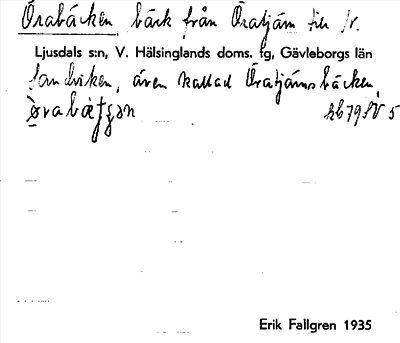 Örabäcken bäck från Öratjärn till N.
Ljusdals s:n, V. Hälsinglands doms. fg, Gävleborgs län
Sandviken, även kallad Öratjärnsbäcken,
kb 79 SV 5
Erik Fallgren 1935